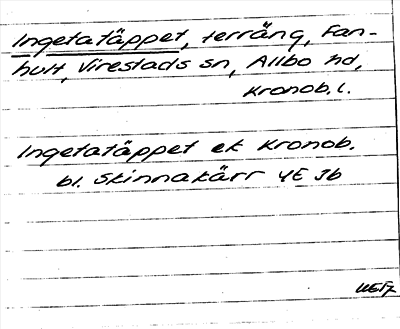 Ingetatäppet, terräng, Fan-
hult, Virestads sn, Allbo hd,
Kronob. l.
Ingetatäppet ek Kronob.
bl. Skinnakärr 4E Jb